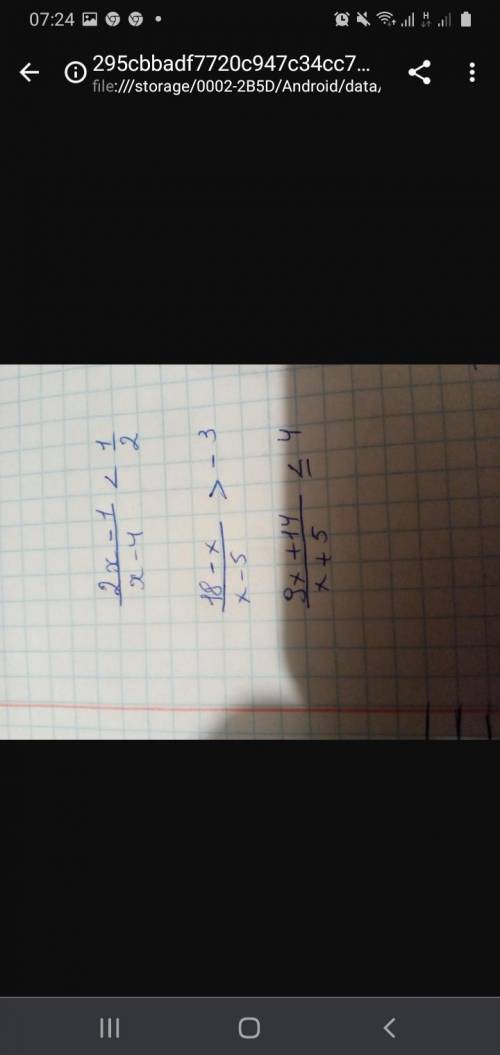 07:24
295cbbadf7720c947c34cc7...
file:///storage/0002-2B5D/Android/data/
(2x-1)/(x-4) < 1/2
(18-x)/(x-5) > -3
(9x+14)/(x+5) ≤ 4